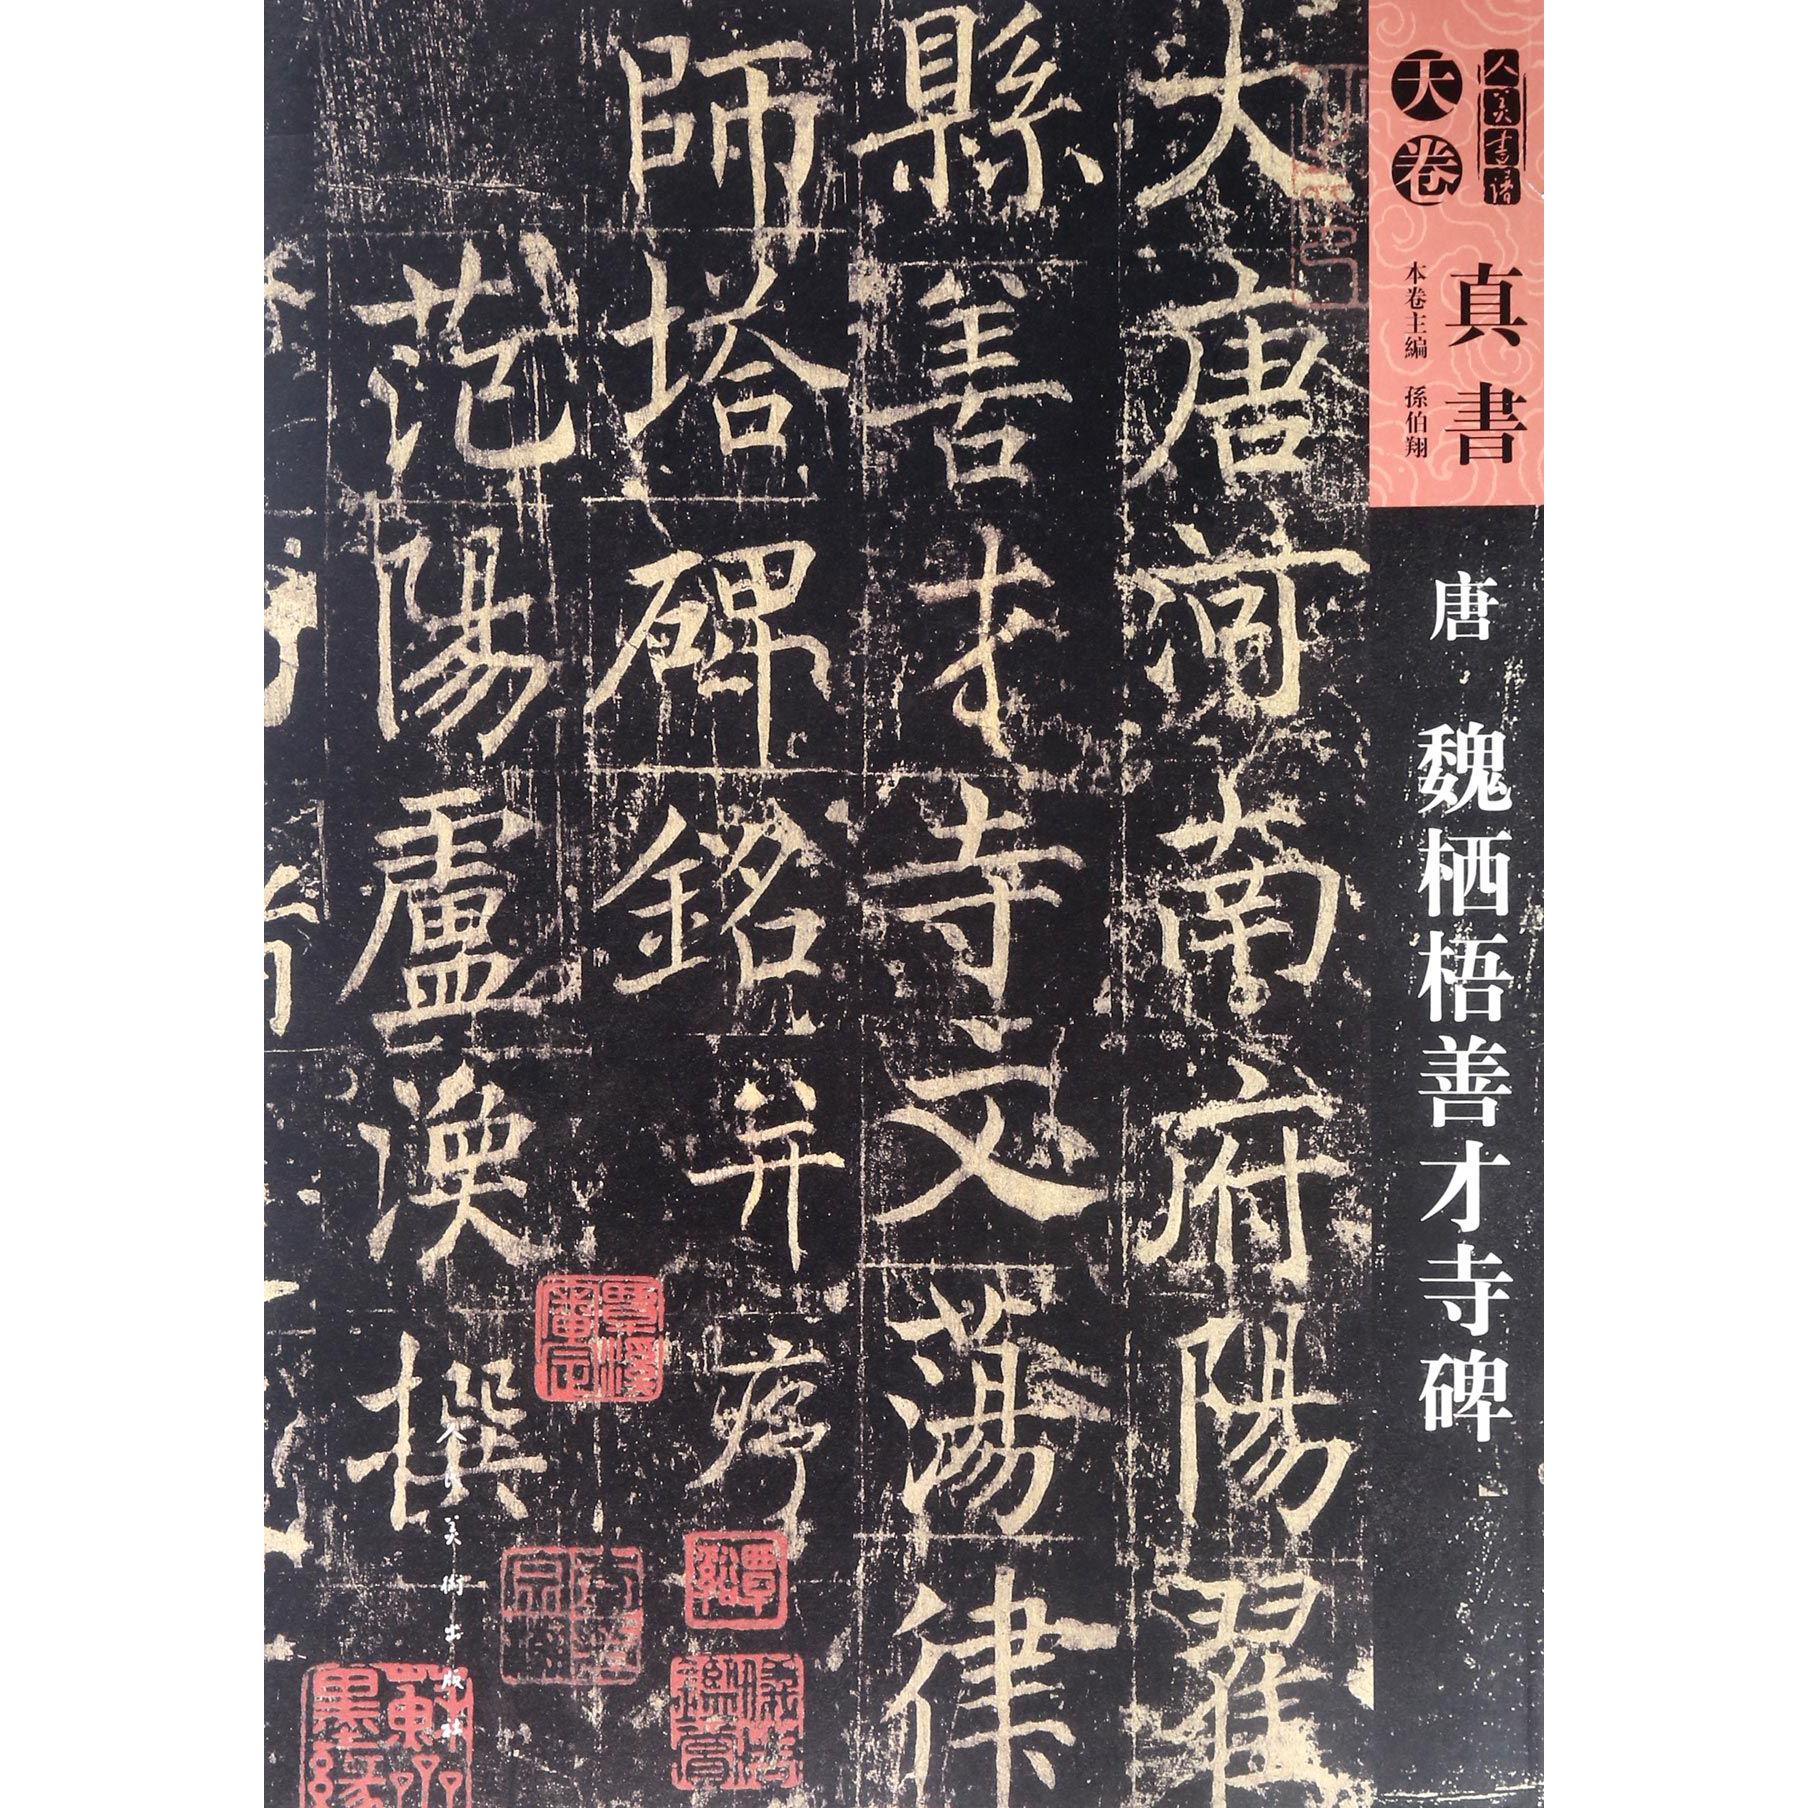 人美書譜
天卷
真書
本卷主編 孫伯翔
唐 魏栖梧善才寺碑
大唐河南府陽翟
縣善才寺文蕩律
師塔碑銘并序
范陽盧渙撰
人民美術出版社
蘇齋墨緣